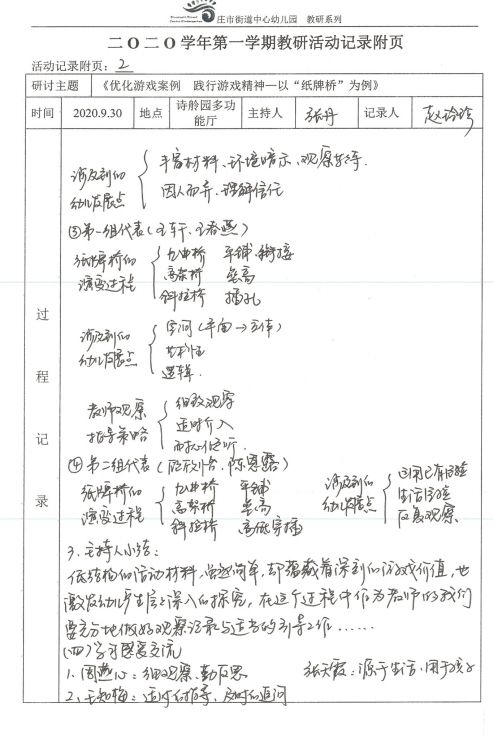 庄市街道中心幼儿园 教研系列
二〇二〇学年第一学期教研活动记录附页
活动记录附页：2
研讨主题 《优化游戏案例 践行游戏精神—以“纸牌桥”为例》
时间 2020.9.30 地点 诗舲园多功能厅 主持人 张丹 记录人 赵玲玲
过程记录
涉及到的幼儿发展点 丰富材料、环境暗示、观察等
因人而异、理解信任
③第一组代表（王轩、王春燕）
纸牌桥的演变过程 九曲桥 平铺、衔接
高架桥 垒高
斜拉桥 插孔
涉及到的幼儿发展点 空间（平面→立体）
艺术性
逻辑
教师观察指导策略 细致观察
适时介入
耐心倾听
④第二组代表（ 陈恩露）
纸牌桥的演变过程 九曲桥 平铺
高架桥 垒高
斜拉桥 高低穿插
涉及到的幼儿发展点 运用已有经验
生活经验
反复观察
3. 主持人小结：
低结构的活动材料，虽然简单，却蕴藏着深刻的游戏价值，也
激发幼儿产生深入的探究，在这个过程中作为教师的我们
要充分地做好观察记录与适当的引导工作……
（四）学习感受交流
1. 周 心：细观察、勤反思 张天霞：源于生活、用于孩子
2. 王知梅：适时的指导、及时的追问